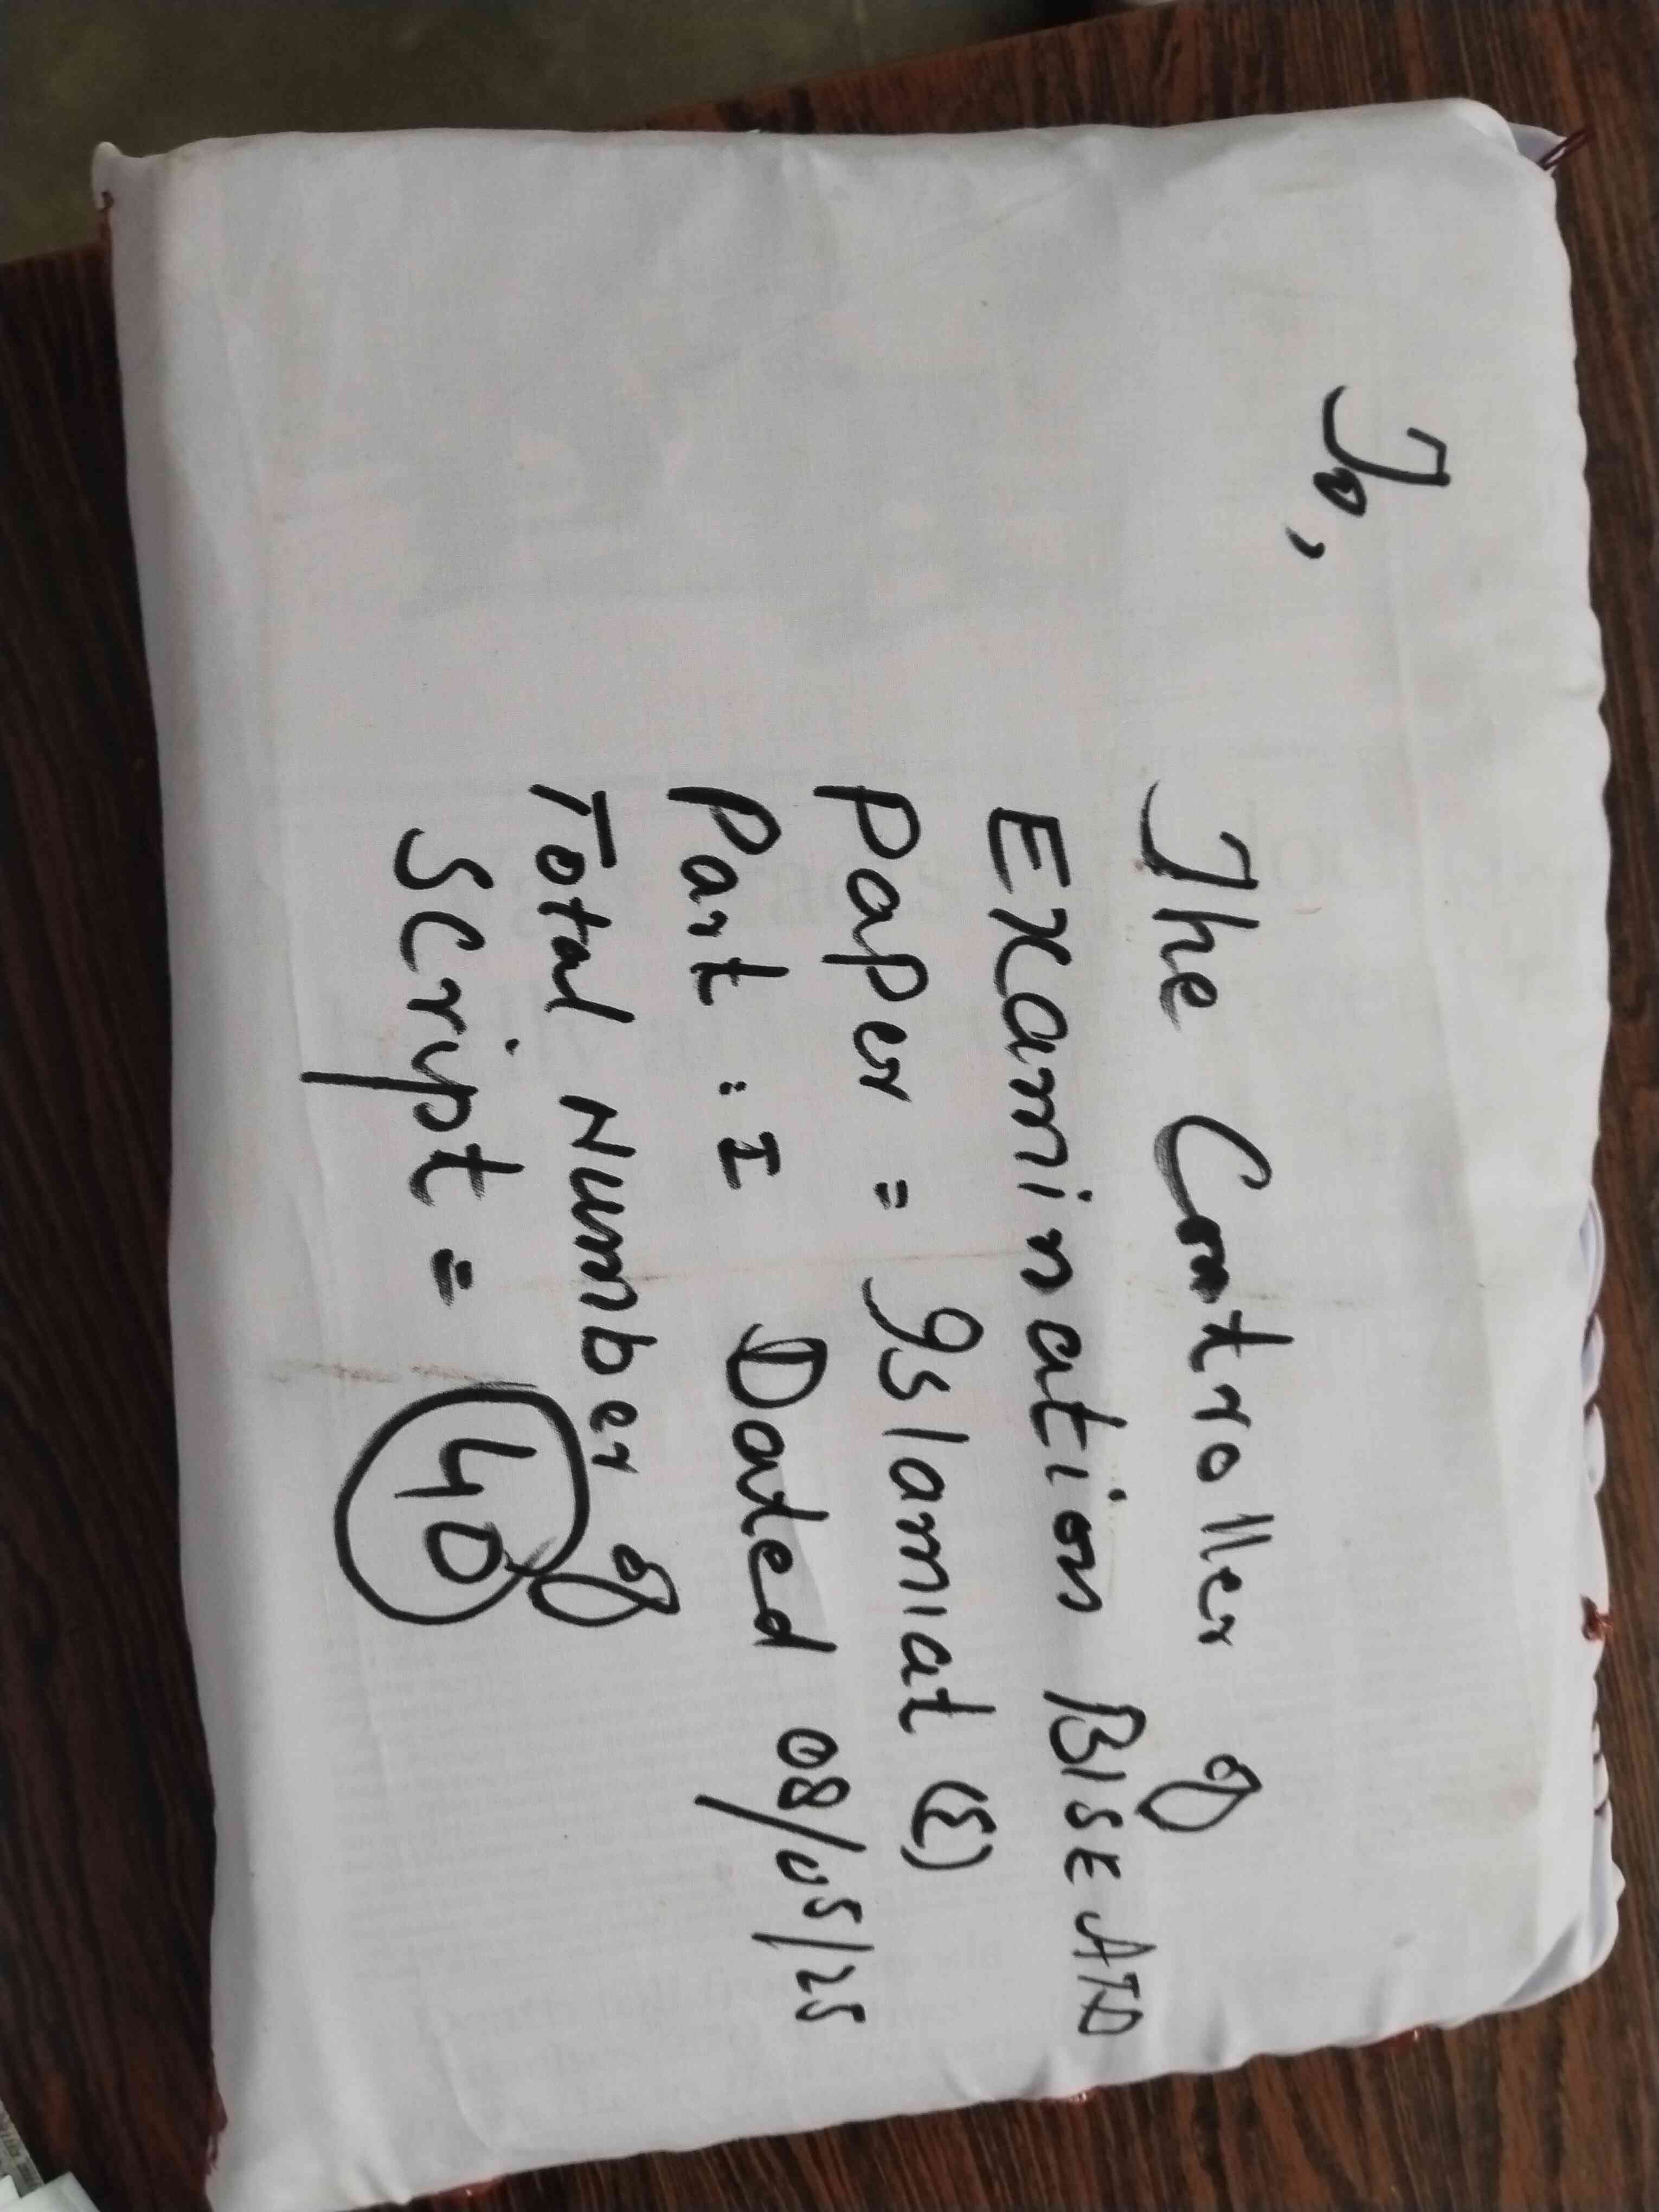 To,
The Controller of
Examination BISE ATD
Paper = Islamiat (E)
Part : I Dated 08/05/25
Total Number of
Script = 40